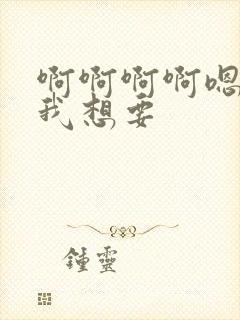 啊啊啊啊嗯
我想要
鍾靈